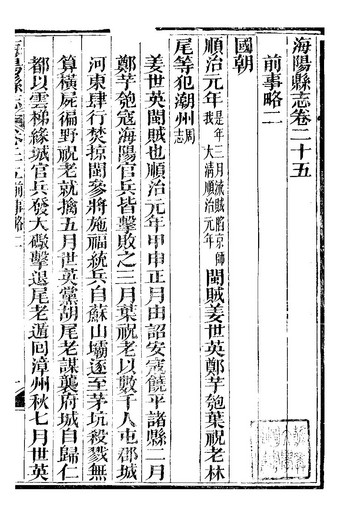 海陽縣志卷二十五
前事略二
國朝
順治元年是年三月流賊陷京師我大清順治元年閩賊姜世英鄭芋匏葉祝老林
尾等犯潮州周志
姜世英閩賊也順治元年甲申正月由詔安寇饒平諸縣二月
鄭芋匏寇海陽官兵皆擊敗之三月葉祝老以數千人屯郡城
河東肆行焚掠閩參將施福統兵自蘇山壩逐至茅坑殺戮無
算橫屍徧野祝老就擒五月世英黨胡尾老謀襲府城自歸仁
都以雲梯緣城官兵發大礮擊退尾老遁回漳州秋七月世英